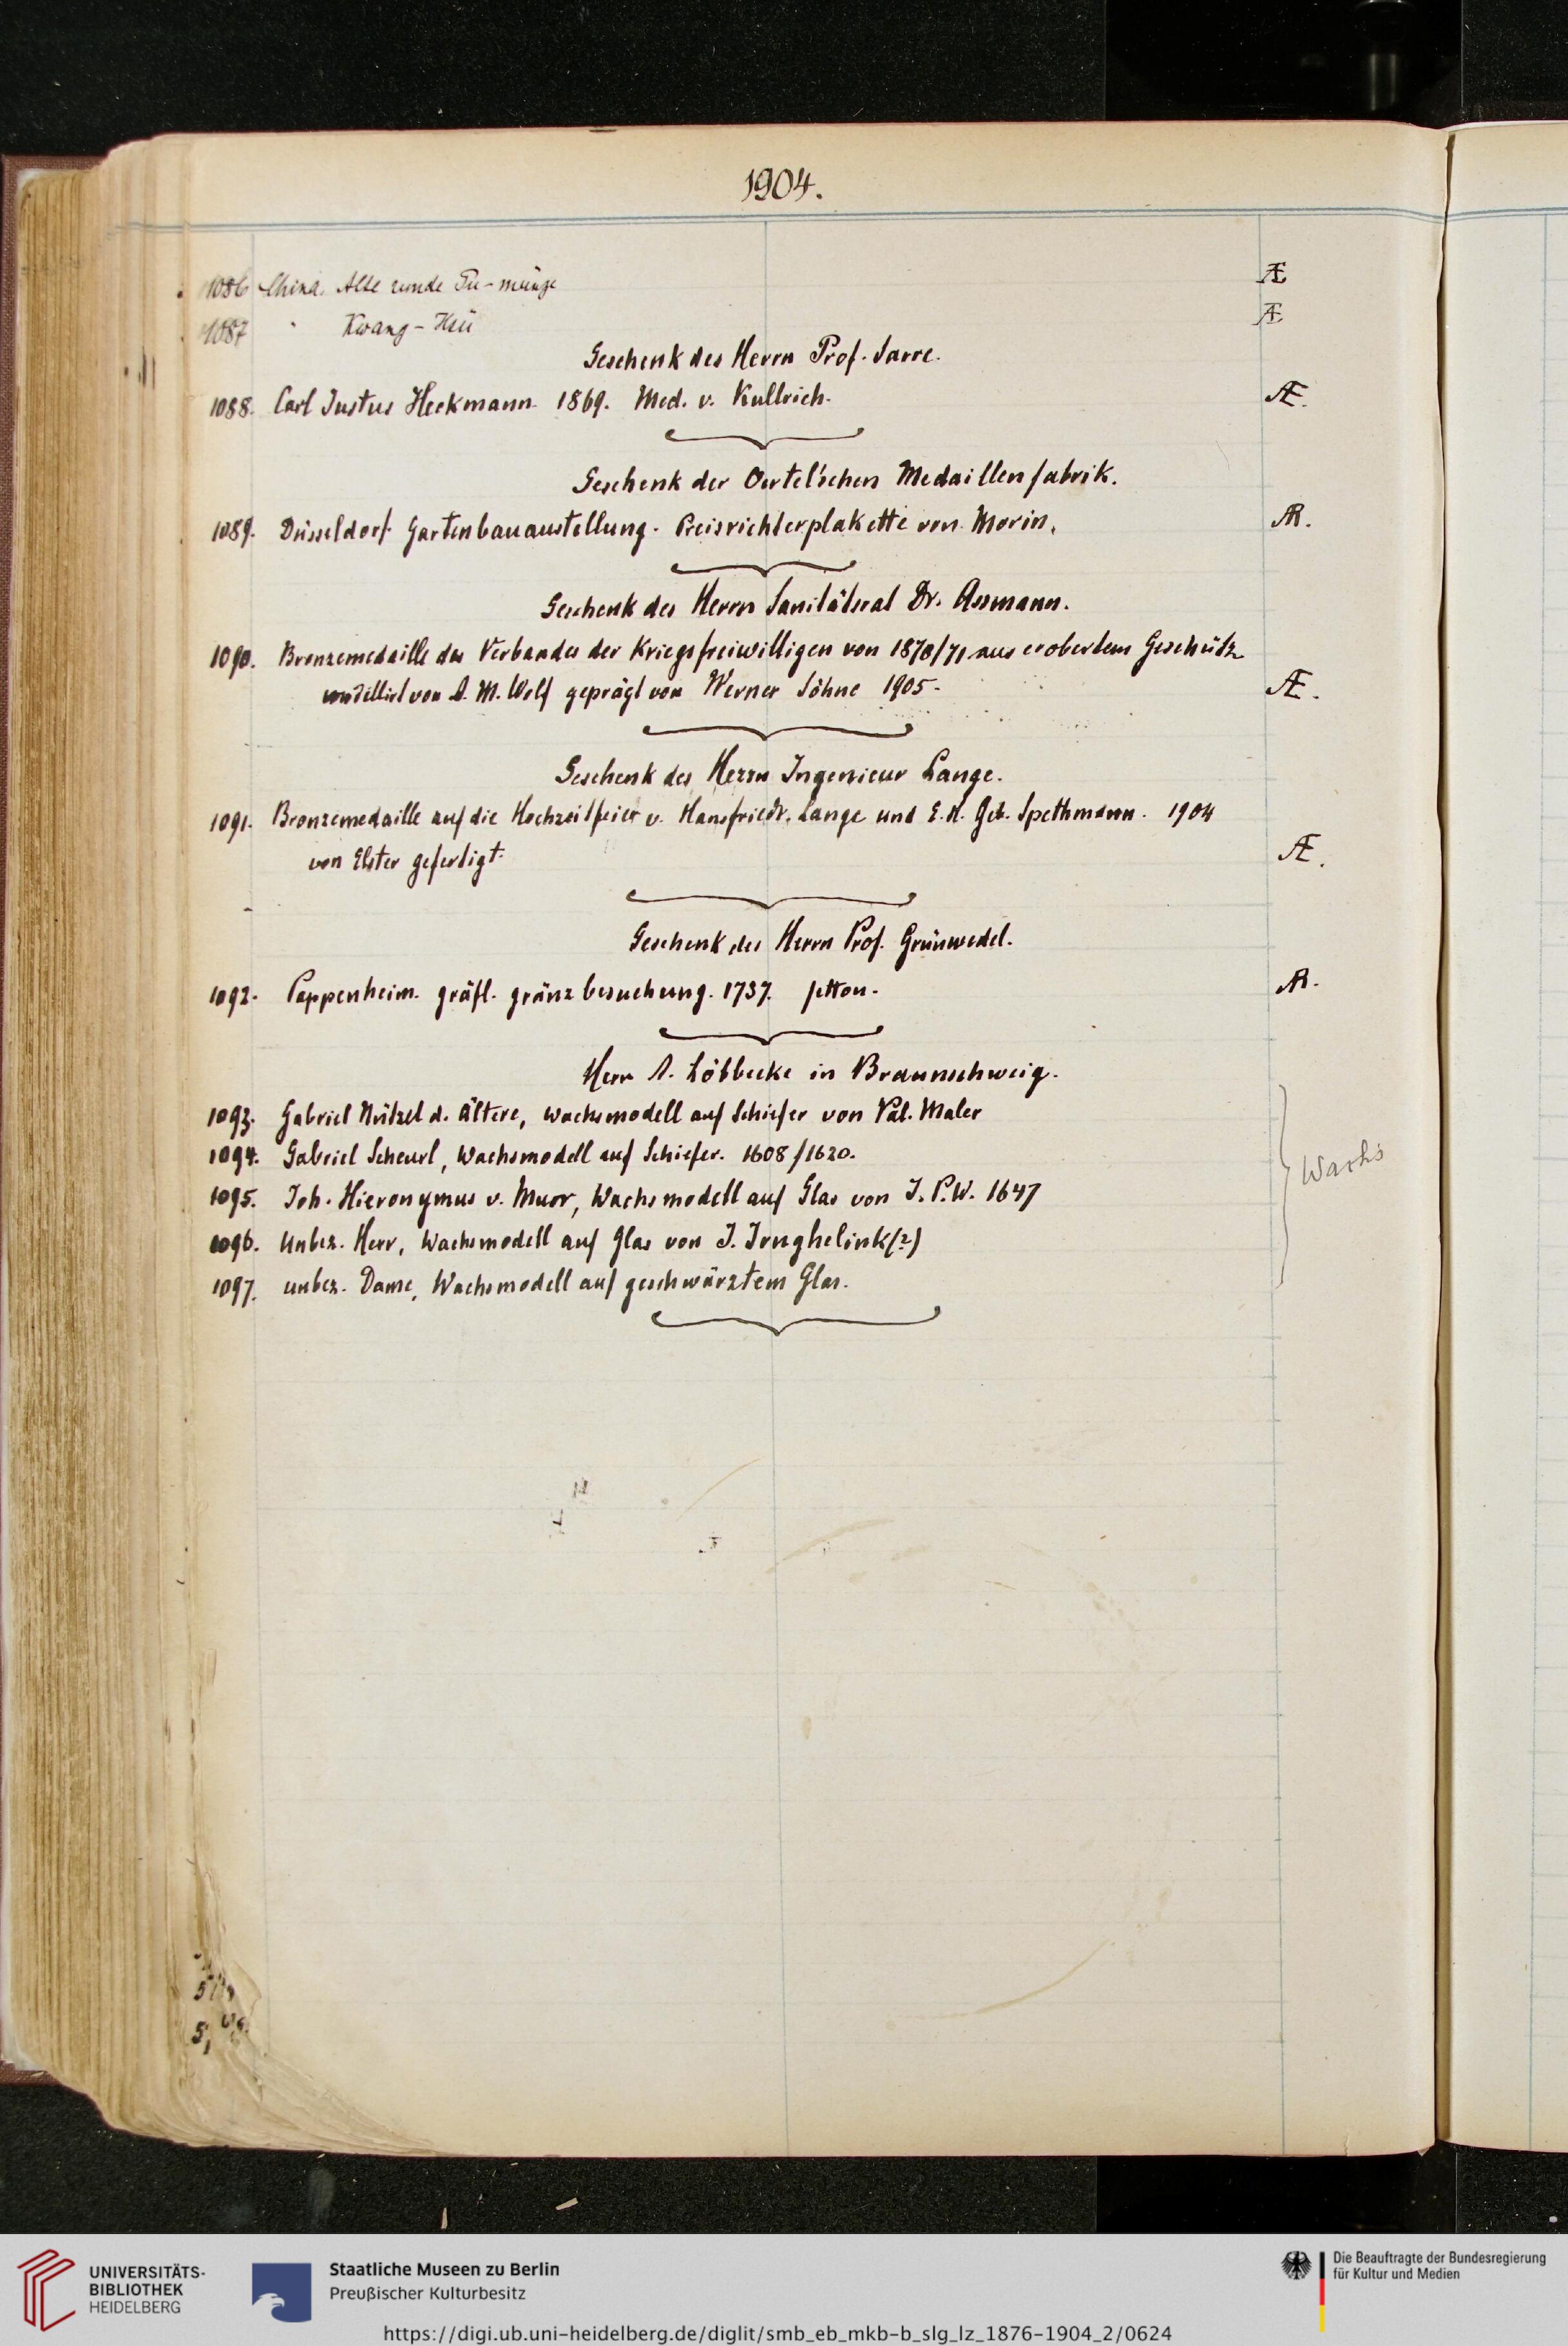 1904.
1086 China. Alte runde Pu-münze Æ
1087 " Kwang-Hsü Æ
Geschenk des Herrn Prof. Sarre.
1088. Carl Justus Heckmann 1869. Med. v. Kullrich. Æ.
Geschenk der Oertel'schen Medaillenfabrik.
1089. Düsseldorf Gartenbauaustellung. Preisrichterplakette von Morin. AR.
Geschenk des Herrn Sanitätsrat Dr. Assmann.
1090. Bronzemedaille des Verbandes der Kriegsfreiwilligen von 1870/71 aus erobertem Geschütz
modelliert von A. M. Wolf geprägt von Werner Söhne 1905. Æ.
Geschenk des Herrn Ingenieur Lange.
1091. Bronzemedaille auf die Hochzeitfeier v. Hansfriedr. Lange und E. H. Geb. Spethmann. 1904
von Elster gefertigt. Æ.
Geschenk des Herrn Prof. Grünwedel.
1092. Pappenheim. gräfl. gränzbesuchung. 1737. AR.
Herr A. Löbbecke in Braunschweig.
1093. Gabriel Nützel d. Ältere, Wachsmodell auf Schiefer von Val. Maler
1094. Gabriel Scheurl, Wachsmodell auf Schiefer. 1608/1620.
Wachs
1095. Joh. Hieronymus v. Murr, Wachsmodell auf Glas von J. P. W. 1647
1096. Unbez. Herr, Wachsmodell auf Glas von J. Jonghelink(?)
1097. unbez. Dame, Wachsmodell auf geschwärztem Glas.
UNIVERSITÄTS-
BIBLIOTHEK
HEIDELBERG
Staatliche Museen zu Berlin
Preußischer Kulturbesitz
Die Beauftragte der Bundesregierung
für Kultur und Medien
https://digi.ub.uni-heidelberg.de/diglit/smb_eb_mkb-b_slg_lz_1876-1904_2/0624